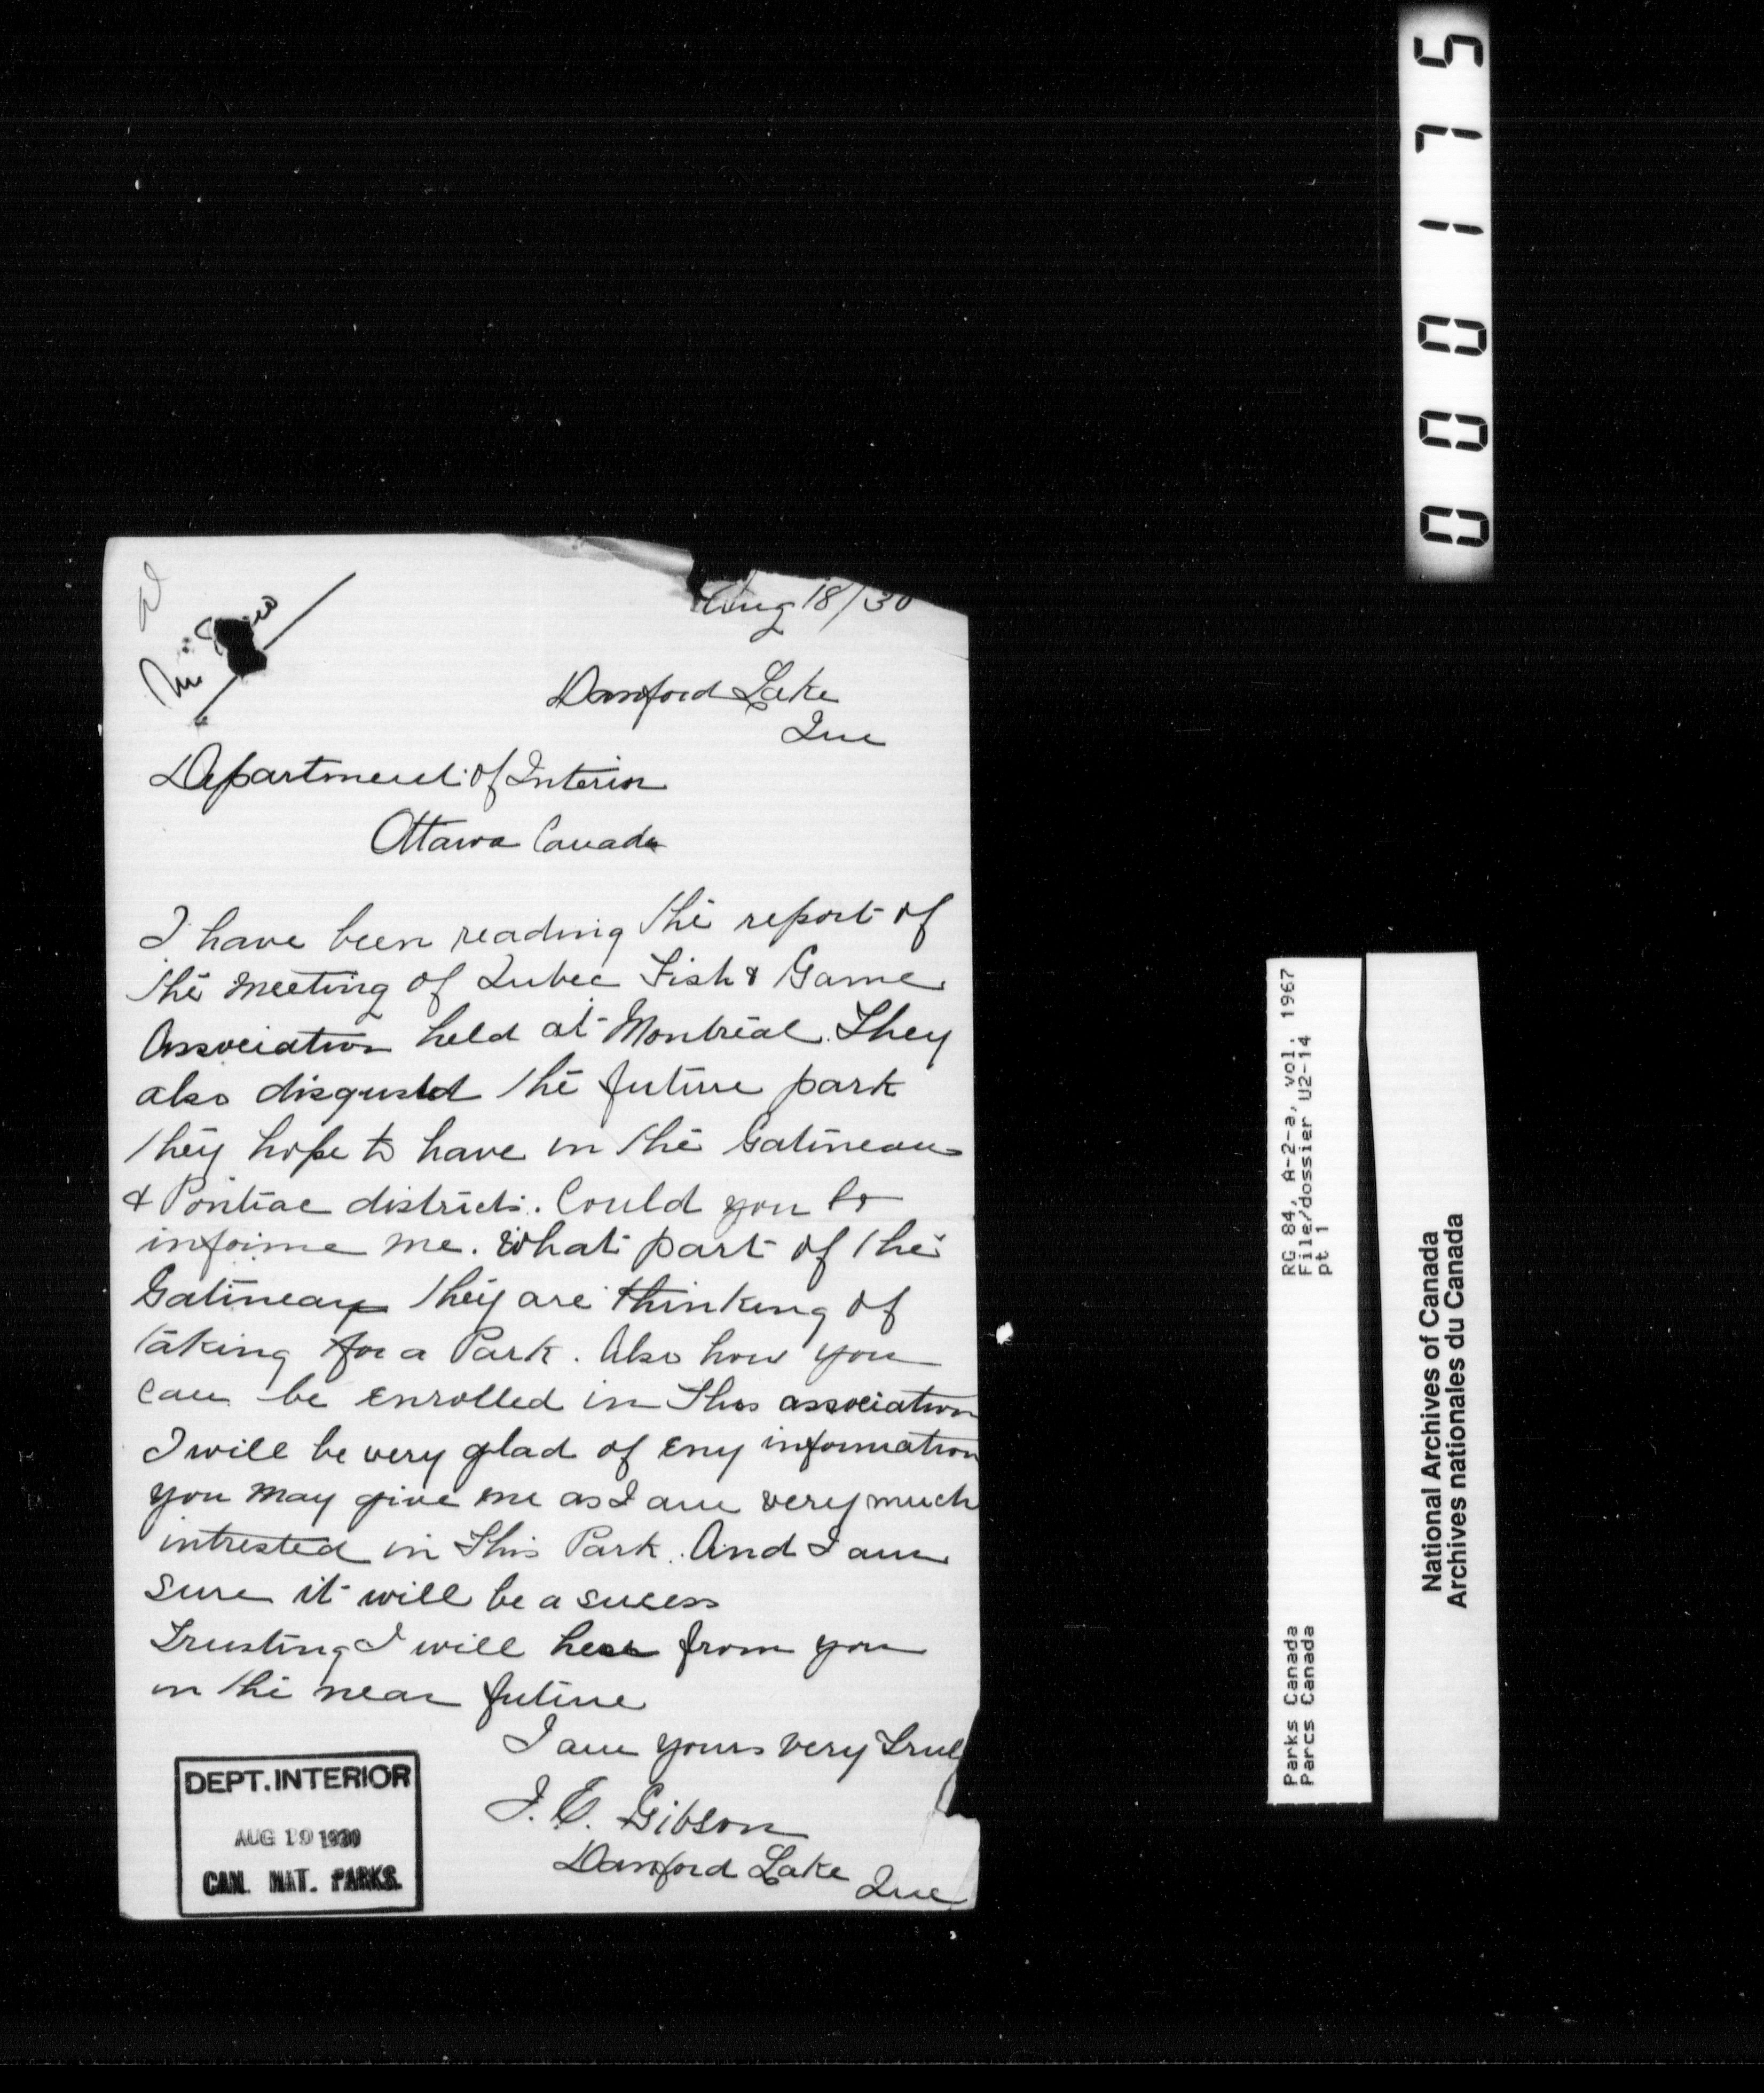 Aug 18/30
Danford Lake
Que
Department of Interior
Ottawa Canada
I have been reading the report of
the meeting of Qubec Fish & Game
Association held at Montreal. They
also disgusted the future park
they hope to have in the Gatineau
& Pontiac districts. Could you to
informe me. What part of the
Gatineau they are thinking of
taking for a Park. Also how you
can be enrolled in this association
I will be very glad of eny information
you may give me as I am very much
intrested in this Park. And I am
sure it will be a sucess
Trusting I will hear from you
in the near future
I am yours very truly
J. C. Gibson
Danford Lake
Que
DEPT. INTERIOR
AUG 19 1930
CAN. NAT. PARKS.
000175
RG 84, A-2-a, vol. 1967
File/dossier U2-14
pt 1
Parks Canada
Parcs Canada
National Archives of Canada
Archives nationales du Canada